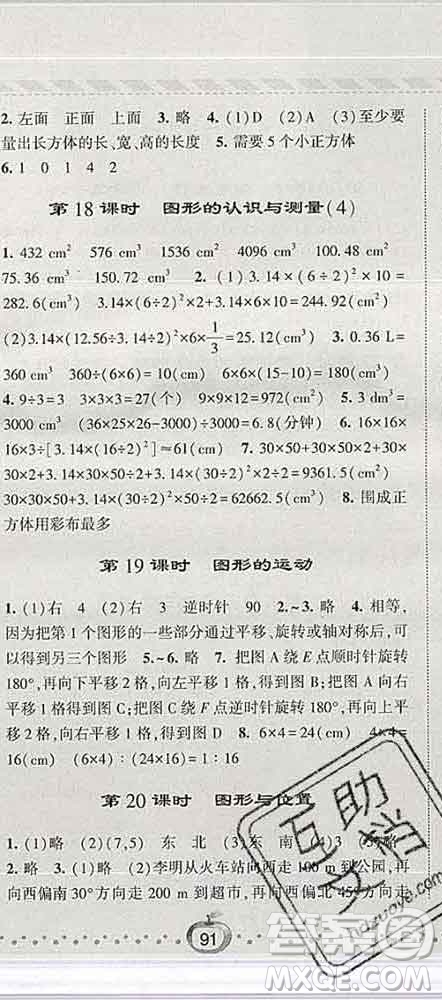 2. 左面　正面　上面　3. 略　4. (1)D　(2)A　(3)至少要
量出长方体的长、宽、高的长度　5. 需要5个小正方体
6. 1　0　1　4　2
第18课时　图形的认识与测量(4)
1. 432 cm²　576 cm²　1536 cm²　4096 cm³　100.48 cm²
75.36 cm³　150.72 cm³　2. (1)3.14×(6÷2)²×10=
282.6(cm³)　3.14×(6÷2)²×2+3.14×6×10=244.92(cm²)
(2)3.14×(12.56÷3.14÷2)²×6×1/3=25.12(cm³)　3. 0.36 L=
360 cm³　360÷(6×6)=10(cm)　6×6×15-360=180(cm³)
4. 9÷3=3　3×3×3=27(个)　9×9×12=972(cm³)　5. 3 dm³=
3000 cm³　(36×25×26-3000)÷3000=6.8(分钟)　6. 16×16×
16×3÷[3.14×(16÷2)²]≈61(cm)　7. 30×50+50×20×2+30×
30×2+3.14×30×50÷2+3.14×(30÷2)²=9361.5(cm²)
30×30×50+3.14×(30÷2)²×50÷2=62662.5(cm³)　8. 围成正
方体用彩布最多
第19课时　图形的运动
1. (1)右　4　(2)右　3　逆时针　90　2.~3. 略　4. 相等,
因为把第1个图形的一些部分通过平移、旋转或轴对称后,可
以得到另三个图形　5.~6. 略　7. 把图A绕E点顺时针旋转
180°,再向下平移2格,向左平移1格,得到图B;把图A向右
平移1格得到图C;把图C绕F点逆时针旋转180°,再向上平
移2格得到图D　8. 6×4=24(cm)　24×4×
16(cm)　(6×4):(24×16)=1:16
第20课时　图形与位置
1. (1)略　(2)(7,5)　东　北　(3)东　南
2. 略　3. (1)略　(2)李明从火车站向西走
向西偏南30°方向走200 m到超市,再向西偏北45°方向走
91
互助文档
hdzuoye.com
答案圈
MXQE.COM